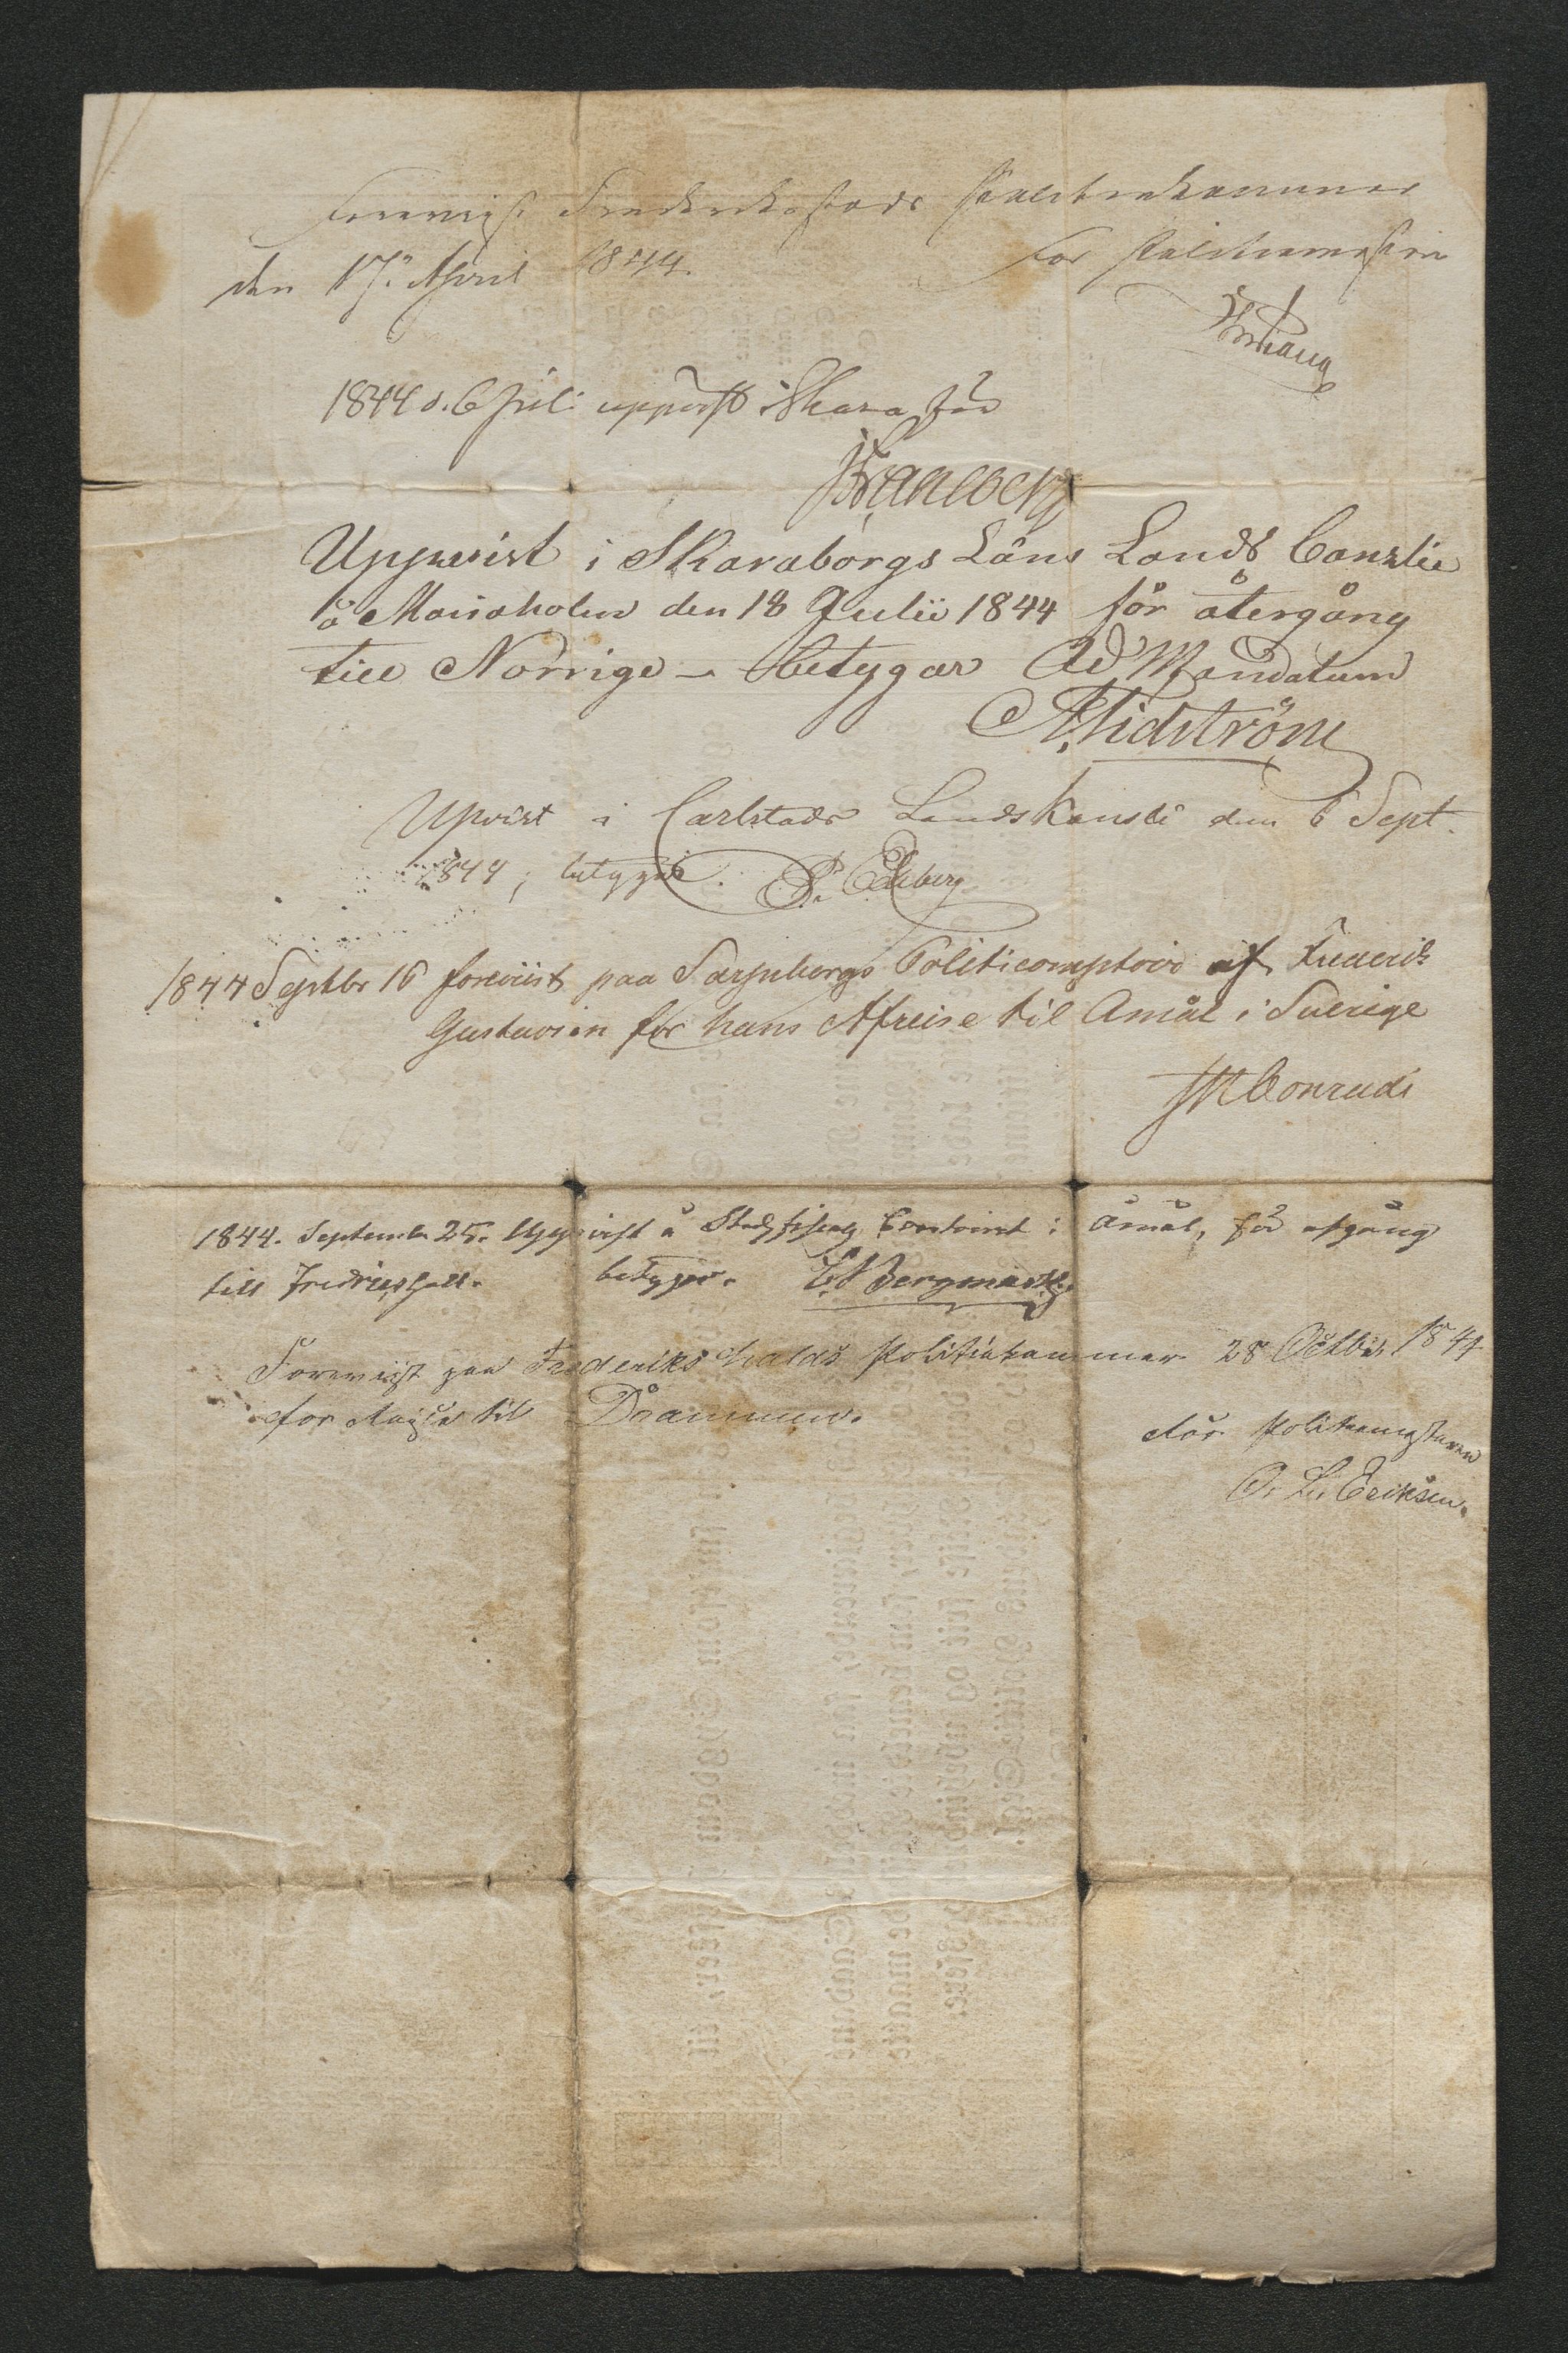 Foreviist Frederikstads Politiekammer
den 17de April 1844. For Politiemesteren
1844 d. 6 Juli uppvist i Skara för
Uppwist i Skaraborgs Läns Lands Canslie
å Mariæholm den 18 Julii 1844 för återgång
till Norrige – betygar Ad Mandatum
A. Lidström
Upvist i Carlstads Landskansli den 6 Sept.
1844; betygar. P. Ekberg
1844 Septbr 16 foreviist paa Sarpsborgs Politicomptoir af Frederik
Gustavsen for hans Afreise til Amål i Sverige
Conradi
1844. September 25. Uppvist å Stadsfiskals Contoiret i Åmål, för afgång
till Fredrikshall. betygar.
Foreviist paa Frederikshalds Politiekammer 28 Octbr 1844
for Reise til Drammen.
For Politiemesteren
O. L. Eriksen.